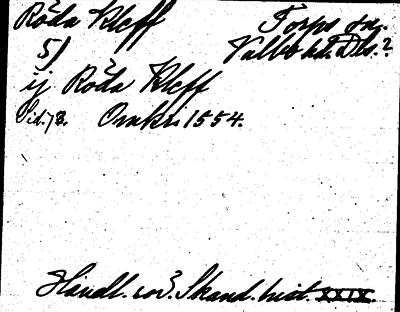 Röda Kleff Torps sn.
5) Valbo hd. Dls.?
ij Röda Kleff
Sid. 73. Omkr. 1554.
Handl. rör. Skand. hist. XXIX.